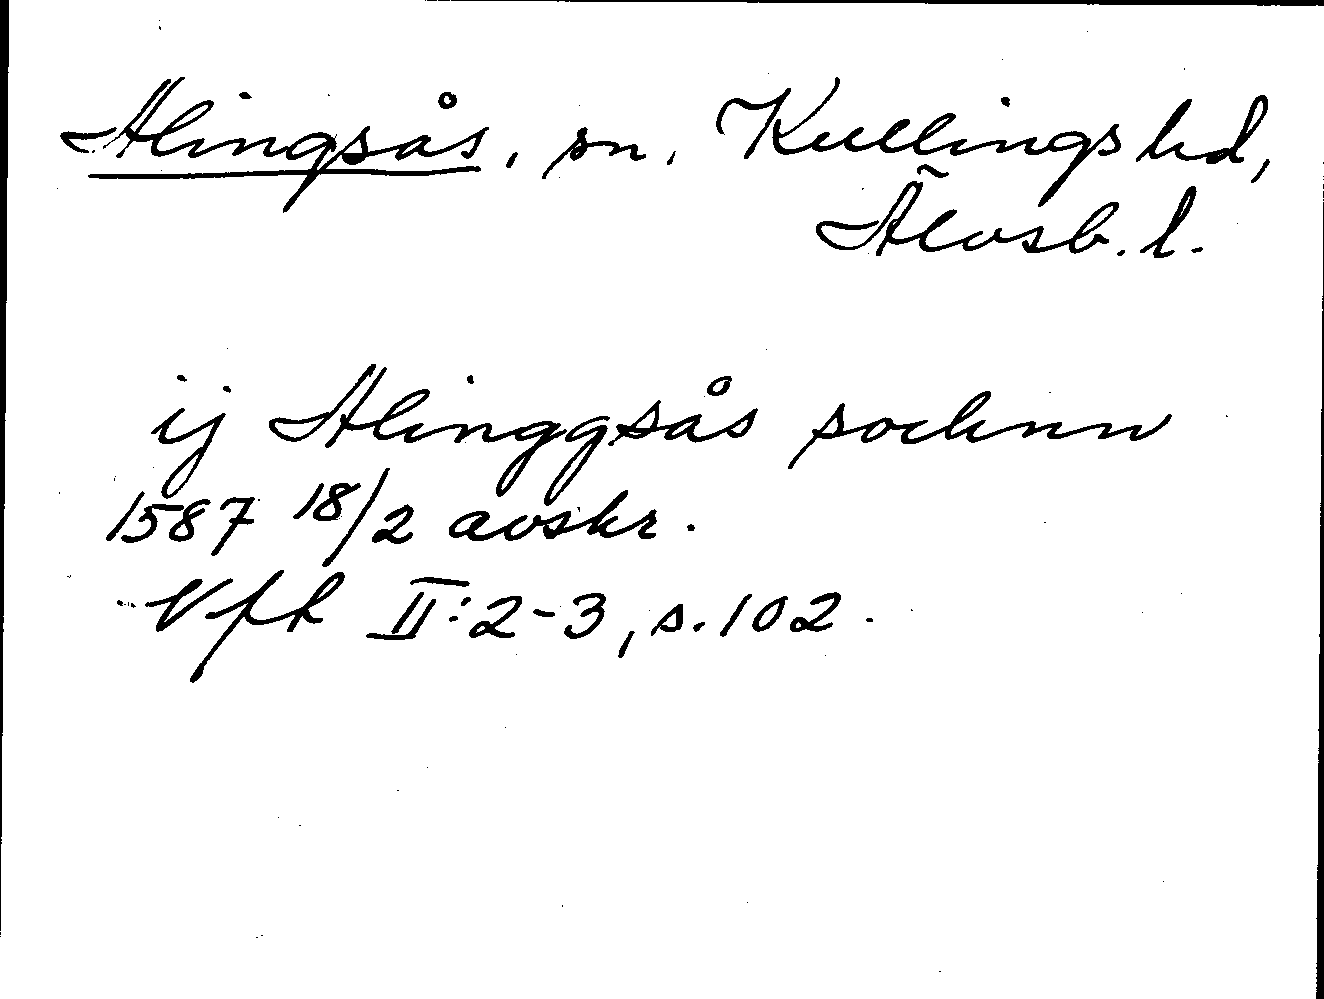 Alingsås, sn, Kullings hd,
Älvsb. l.
ij Alinggsås sochnn
1587 18/2 avskr.
Vfk II:2-3, s. 102.